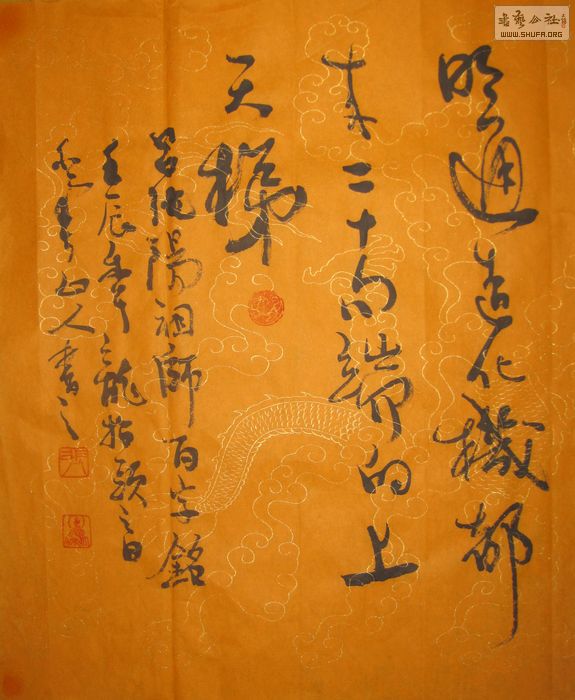 書藝公社
WWW.SHUFA.ORG
明通造化機都
来二十句端的上
天梯
吕純陽祖師百字銘
壬辰年龍抬頭之日
山人書之